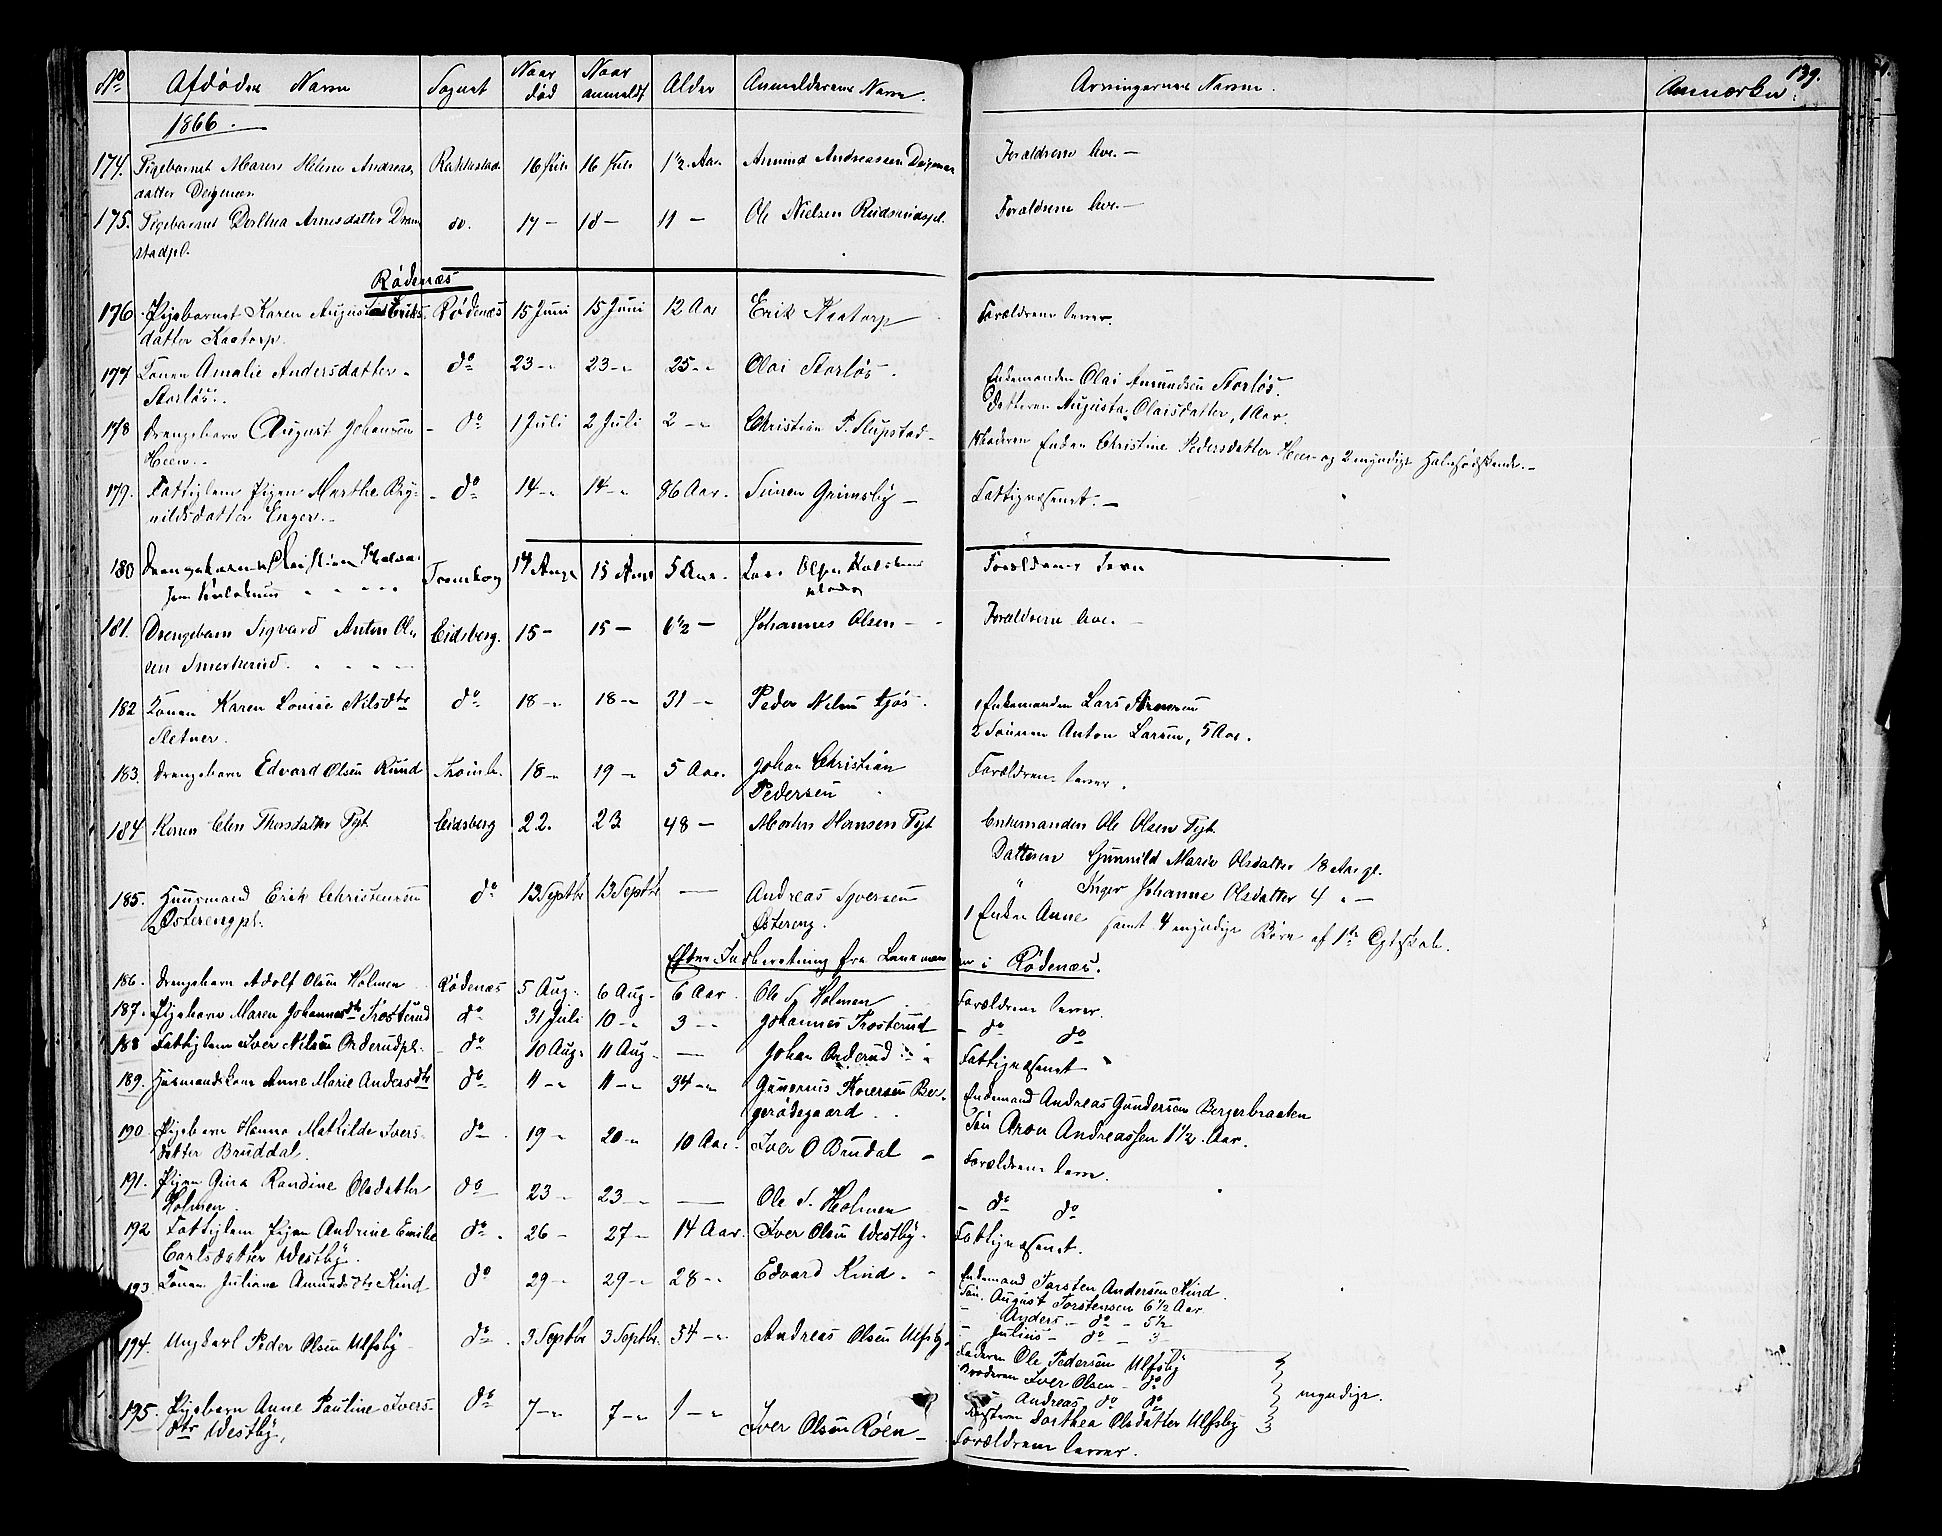 139.
No Afdødes Navn Sognet Naar død Naar anmeldt Alder Anmelderens Navn. Arvingernes Navne. Anmærkn:
1866.
174. Pigebarnet Maren Helene Andreas- Rakkestad 16 Juli 16 Juli 1½ Aar Amund Andreassen Degernæs Forældrene leve. —
datter Degernæs
175. Pigebarnet Dorthea Arnesdatter do. 17 — 18 — 11 — Ole Nielsen Rudsrudspl. Forældrene leve. —
stadpl.
Rødenæs
176. Pigebarnet Karen Augusta Eriks- Rødenæs 15 Juni 15 Juni 12 Aar Erik Kaatorp Forældrene lever.
datter Kaatorp.
177 Konen Amalie Andersdatter do 23 -„ 23 -„ 25 -„ Olai Storløs. Enkemanden Olai Amundsen Storløs.
Storløs. Datteren Augusta Olaisdatter, 1 Aar.
178 Drengebarn August Johansen do 1 Juli 2 Juli 2 -„ Christian P. Slupstad Moderen Enken Christine Pedersdatter Heen og 2 myndige Halvsødskende. —
Heen.
179. Fattiglem Pigen Marthe Bry- do 14 -„ 14 -„ 86 Aar. Simen Grimsby — Fattigvæsenet. —
nildsdatter Enger. —
180 Drengebarn Christian Tromborg 14 Aug. 15 Aug. 5 Aar. Lars Olsen Forældrene leve
181. Drengebarn Sigvard Anton Ol- Eidsberg. 15 — 15 — 6½ — Johannes Olsen — Forældrene leve. —
sen Smerkerud.
182 Konen Karen Lovise Nilsdtr do 18 -„ 18 -„ 31 -„ Peder Nilsen Gjøs. 1 Enkemanden Lars
Sletner. 2 Sønnen Anton Larsen, 5 Aar.
183. Drengebarn Edvard Olsen Rund Tromb. 18 -„ 19 -„ 5 Aar. Johan Christian Forældrene lever.
Pedersen
184 Konen Elen Thorsdatter Fyt. Eidsberg 22. 23 48 — Morten Hansen Fyt Enkemanden Ole Olsen Fyt.
Datteren Gunnild Marie Olsdatter 18 Aar gl.
" Inger Johanne Olsdatter 4 „ —
185. Huusmand Erik Christensen do 13 Septbr 13 Septbr — Andreas Iversen 1 Enken Anne samt 4 myndige Børn af 1ste Egteskab.
Østerengpl. Østereng.
Efter Indberetning fra Lensmanden i Rødenæs.
186. Drengebarn Adolf Olsen Holmen Rødenæs 5 Aug. 6 Aug. 6 Aar. Ole S. Holmen Forældrene lever.
187. Pigebarn Maren Johannesdtr Trosterud do 31 Juli 10 -„ 3 -„ Johannes Trosterud — do do
188 Fattiglem Iver Nilsen Orderudpl. do 10 Aug. 11 Aug. — Johan Orderud Fattigvæsenet
189. Husmandskone Anne Marie Andersdtr do 11 -„ 11 -„ 34 -„ Gunerius Iversen Ber- Enkemand Andreas Gundersen Bergerbraaten
gerødegaard. Søn Aron Andreassen 1½ Aar.
190 Pigebarn Hanna Mathilde Ivers- do 19 -„ 20 -„ 10 Aar. Iver O Bruddal — Forældrene lever.
datter Bruddal.
191. Pigen Gina Randine Olsdatter do 23 -„ 23 -„ — Ole S. Holmen — do do
Holmen.
192 Fattiglem Pigen Andrine Emilie do 26 — 27 -„ 14 Aar. Iver Olsen Westby. Fattigvæsenet.
Carlsdatter Westby.
193. Konen Juliane Amundsdtr Kind do 29 -„ 29 -„ 28 -„ Edvard Kind. Enkemand Torsten Andersen Kind.
Søn. August Torstensen 6½ Aar
— Anders — do — 5½
— Julius — do — 3
194. Ungkarl Peder Olsen Ulfsby do 3 Septbr 3 Septbr. 54 -„ Andreas Olsen Ulfsby Faderen Ole Pedersen Ulfsby
Broderen Iver Olsen — do
Andreas do do myndige.
Søsteren Dorthea Olsdatter Ulfsby
195. Pigebarn Anne Pauline Ivers- do 7 -„ 7 -„ 1 -„ Iver Olsen Røen — Forældrene lever.
dtr Westby.